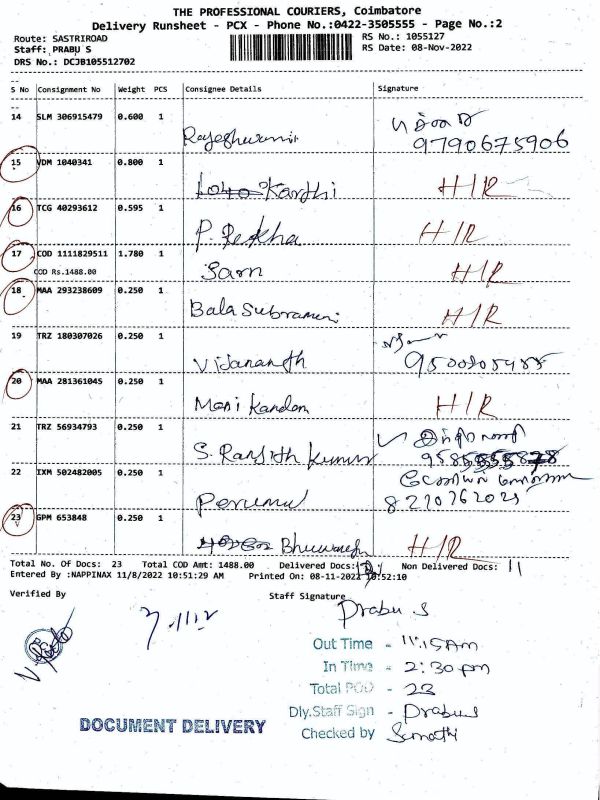 THE PROFESSIONAL COURIERS, Coimbatore
Delivery Runsheet - PCX - Phone No.:0422-3505555 - Page No.:2
Route: SASTRIROAD RS No.: 1055127
Staff: PRABU S RS Date: 08-Nov-2022
DRS No.: DCJB105512702
S No Consignment No Weight PCS Consignee Details Signature
14 SLM 306915479 0.600 1
Rajeshwari 9790675906
15 VDM 1040341 0.800 1
Karthi H/R
16 TCG 40293612 0.595 1
P. Rekha H/R
17 COD 1111829511 1.780 1
COD Rs.1488.00 Sarn H/R
18 MAA 293238609 0.250 1
Bala Subramani H/R
19 TRZ 180307026 0.250 1
Vijananth
20 MAA 281361045 0.250 1
Mani kandan H/R
21 TRZ 56934793 0.250 1
S. Ranjith Kumar
22 IXM 502482005 0.250 1
Perumal 8210762021
23 GPM 653848 0.250 1
Bhuwanesh H/R
Total No. Of Docs: 23 Total COD Amt: 1488.00 Delivered Docs: Non Delivered Docs: 11
Entered By :NAPPINAX 11/8/2022 10:51:29 AM Printed On: 08-11-2022 10:52:10
Verified By Staff Signature
Prabu S
Out Time - 11:15 AM
In Time - 2:30 pm
Total POD - 23
Dly.Staff Sign - Prabu S
DOCUMENT DELIVERY
Checked by Sumathi